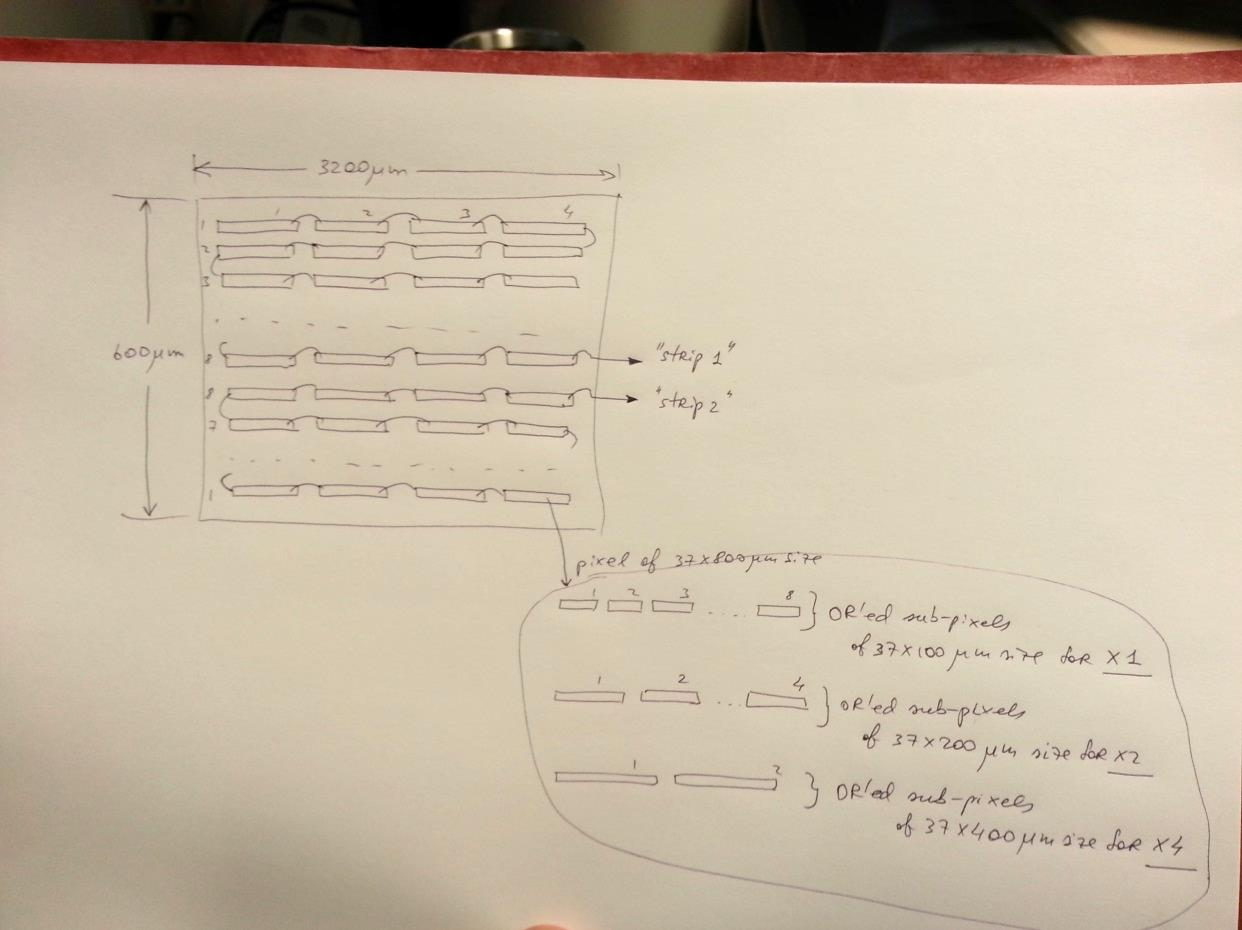 3200μm
1 2 3 4
1
2
3
600μm
8 "strip 1"
8 "strip 2"
7
1
pixel of 37×800μm size
1 2 3 .... 8 } OR'ed sub-pixels
of 37×100 μm size for ×1
1 2 ... 4 } OR'ed sub-pixels
of 37×200 μm size for ×2
1 2 } OR'ed sub-pixels
of 37×400 μm size for ×4